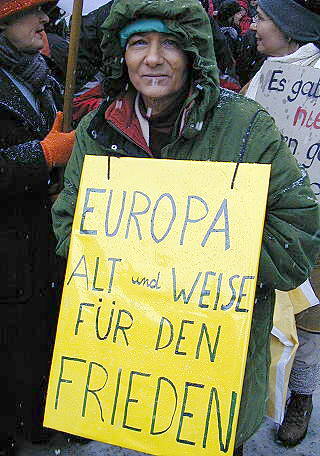 EUROPA
ALT und WEISE
FÜR DEN
FRIEDEN
Es gab
nie